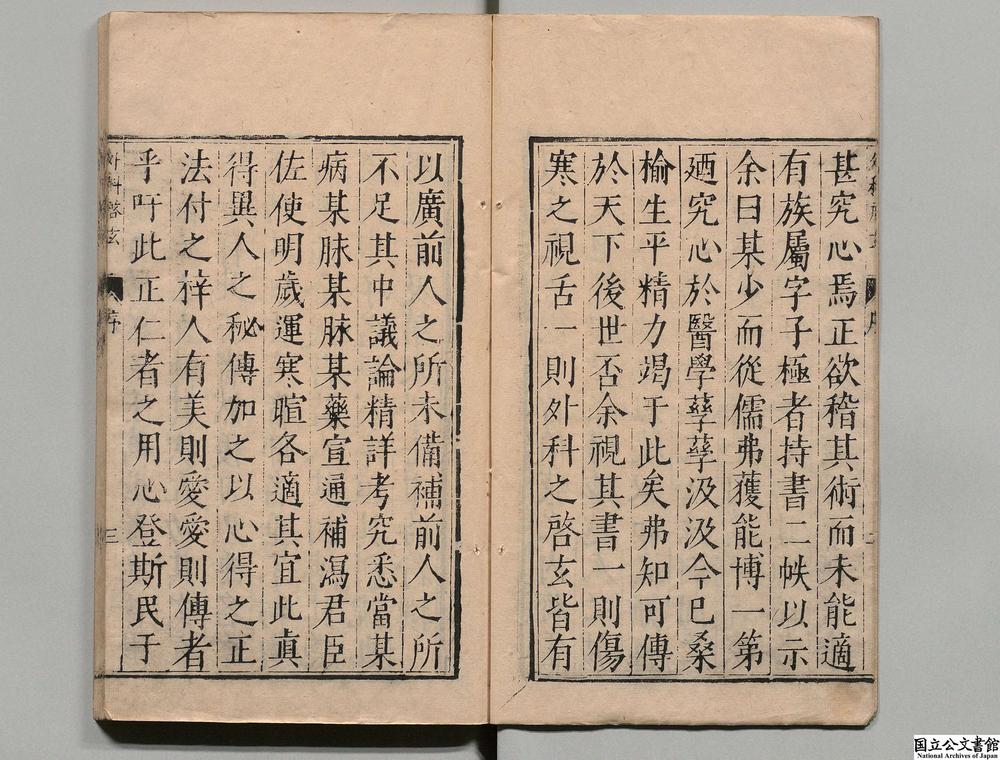 甚究心焉正欲稽其術而未能適
有族屬字子極者持書二帙以示
余曰某少而從儒弗獲能博一第
廼究心於醫學孳孳汲汲今已桑
榆生平精力竭于此矣弗知可傳
於天下後世否余視其書一則傷
寒之視舌一則外科之啓玄皆有
以廣前人之所未備補前人之所
不足其中議論精詳考究悉當某
病某脉某脉某藥宣通補瀉君臣
佐使明歲運寒暄各適其宜此眞
得異人之秘傳加之以心得之正
法付之梓人有美則愛愛則傳者
乎吁此正仁者之用心登斯民于
外科啓玄
序
三
国立公文書館
National Archives of Japan